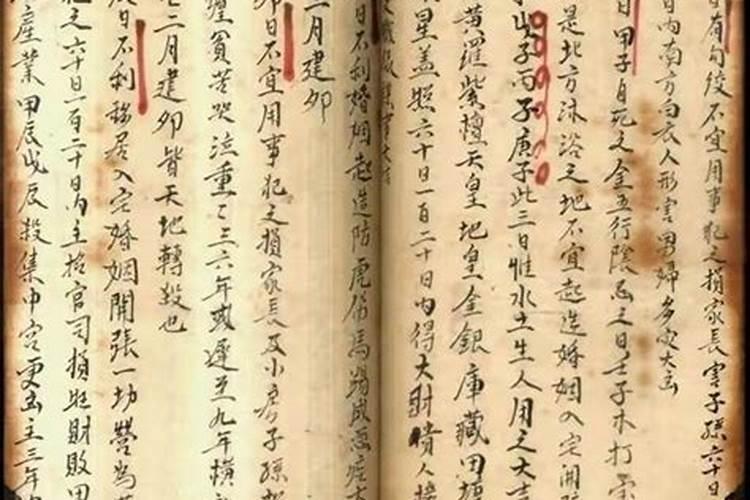 日有勾絞不宜用事犯之損家長害子孫六十日
日內南方白衣人形害男婦多灾大凶
日甲子自死之金五行陰忌之日壬子木打
是北方沐浴之地不宜起造婚姻入宅開
子丙子庚子此三日惟水土生人用之大吉
黃羅紫檀天皇地皇金銀庫藏田塘
星盖照六十日一百二十日內得大財貴人
日不利婚姻起造防虎傷馬踢
二月建卯
卯日不宜用事犯之損家長及小房子孫
纏貧苦哭泣重重三六年或遲至九年橫
二月建卯皆天地轉殺也
日不利移居入宅婚姻開張一切營為
犯之六十日一百二十日內主招官司損財敗田
產業甲辰戊辰殺集中宮更凶主三年